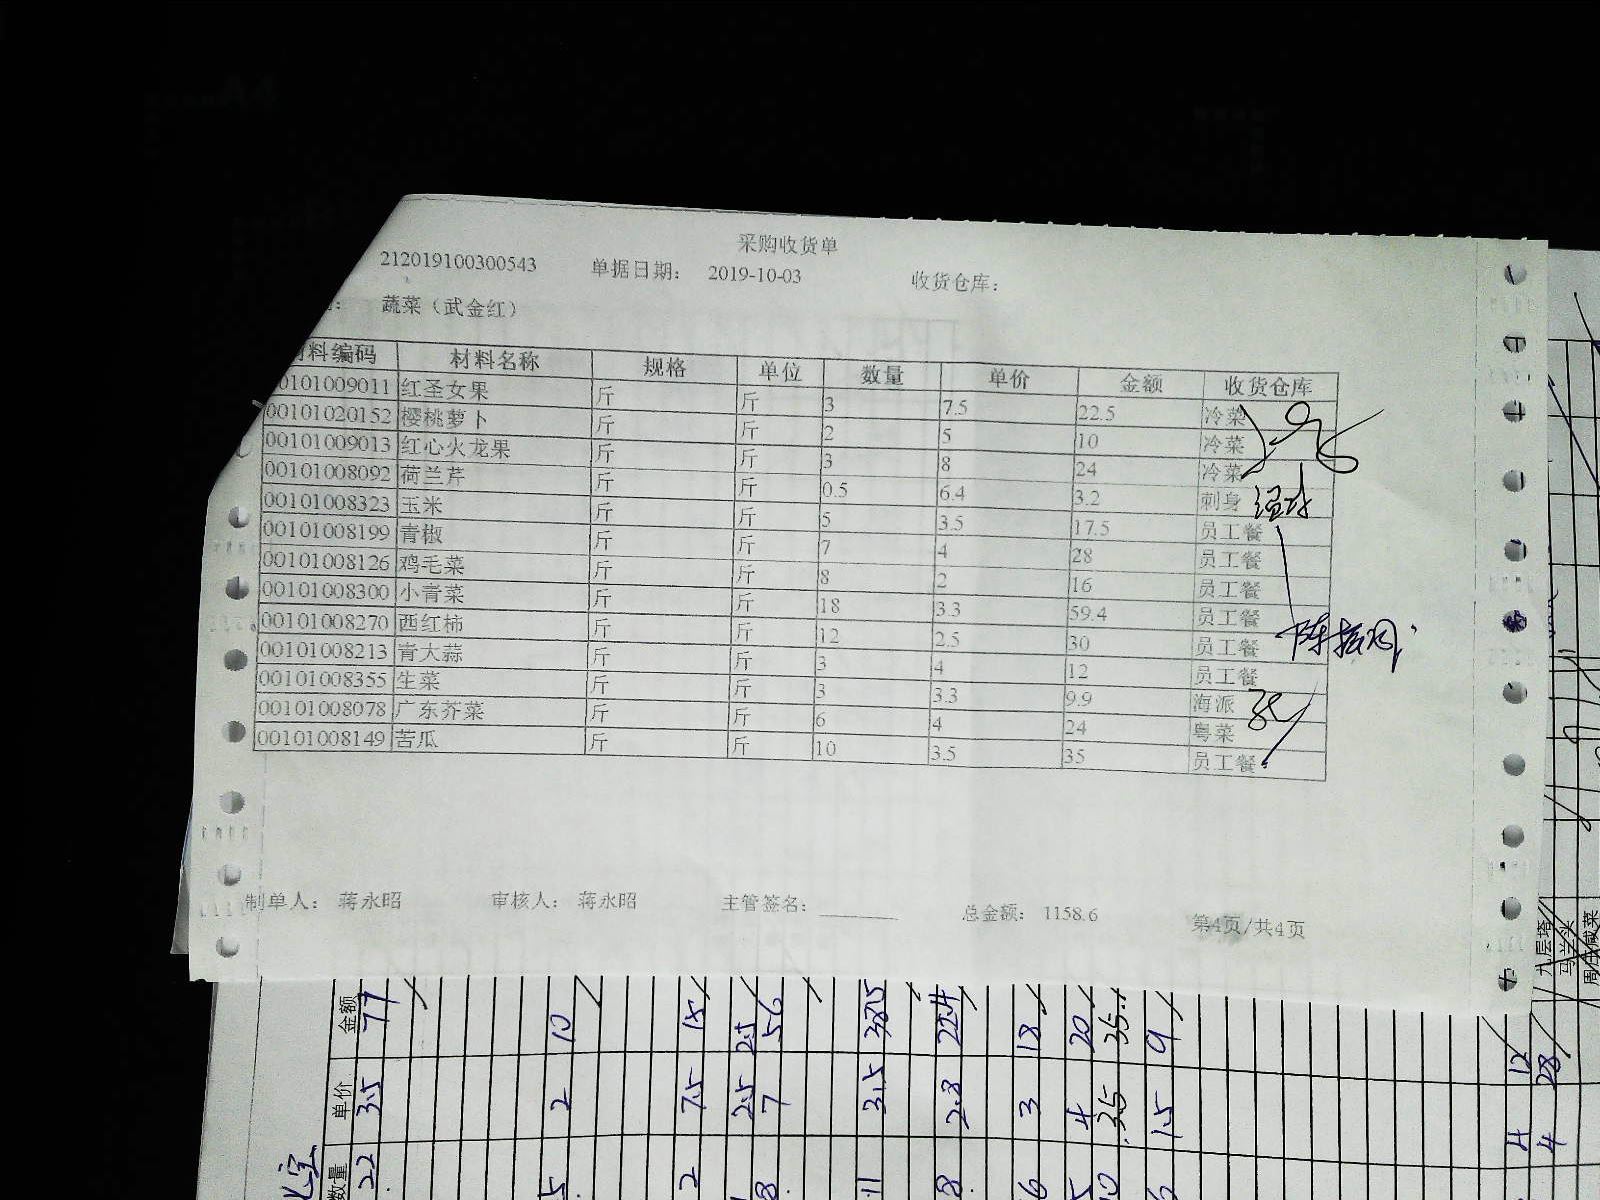 采购收货单
212019100300543 单据日期： 2019-10-03 收货仓库：
： 蔬菜（武金红）
材料编码 材料名称 规格 单位 数量 单价 金额 收货仓库
00101009011 红圣女果 斤 斤 3 7.5 22.5 冷菜
00101020152 樱桃萝卜 斤 斤 2 5 10 冷菜
00101009013 红心火龙果 斤 斤 3 8 24 冷菜
00101008092 荷兰芹 斤 斤 0.5 6.4 3.2 刺身
00101008323 玉米 斤 斤 5 3.5 17.5 员工餐
00101008199 青椒 斤 斤 7 4 28 员工餐
00101008126 鸡毛菜 斤 斤 8 2 16 员工餐
00101008300 小青菜 斤 斤 18 3.3 59.4 员工餐
00101008270 西红柿 斤 斤 12 2.5 30 员工餐
00101008213 青大蒜 斤 斤 3 4 12 员工餐
00101008355 生菜 斤 斤 3 3.3 9.9 海派
00101008078 广东芥菜 斤 斤 6 4 24 粤菜
00101008149 苦瓜 斤 斤 10 3.5 35 员工餐
制单人： 蒋永昭 审核人： 蒋永昭 主管签名： 总金额： 1158.6 第4页/共4页
数量 单价 金额
22 3.5 77
5 2 10
2 7.5 15
2.5 2.5
8 7 56
11 3.5 38.5
8 2.8 22.4
6 3 18
5 4 20
10 3.5 35
6 1.5 9
4 12
4 28
九层塔
马兰头